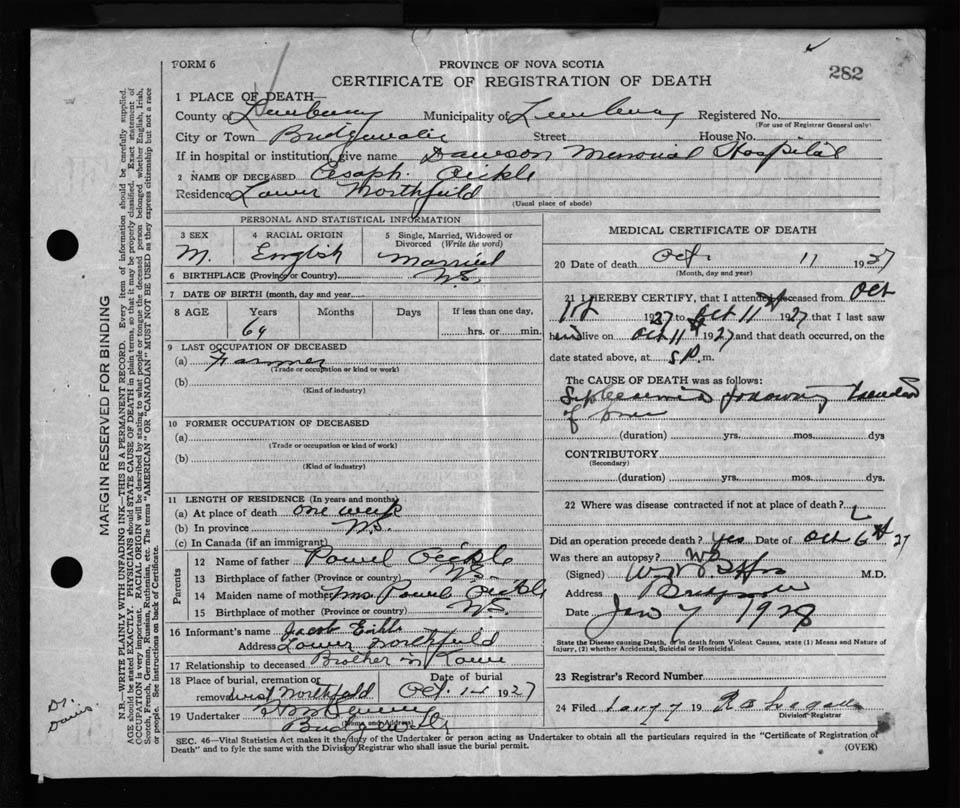 FORM 6
PROVINCE OF NOVA SCOTIA
282
CERTIFICATE OF REGISTRATION OF DEATH
1 PLACE OF DEATH—
County of Lunenburg Municipality of Lunenburg Registered No.
(For use of Registrar General only)
City or Town Bridgewater Street House No.
If in hospital or institution, give name Dawson Memorial Hospital
2 NAME OF DECEASED
Residence Lower Northfield
(Usual place of abode)
PERSONAL AND STATISTICAL INFORMATION
3 SEX M.
4 RACIAL ORIGIN English
5 Single, Married, Widowed or Divorced (Write the word) Married
6 BIRTHPLACE (Province or Country) N.S.
7 DATE OF BIRTH (month, day and year)
8 AGE Years Months Days If less than one day,
69 hrs. or min.
9 LAST OCCUPATION OF DECEASED
(a) Farmer
(Trade or occupation or kind or work)
(b)
(Kind of industry)
10 FORMER OCCUPATION OF DECEASED
(a)
(Trade or occupation or kind of work)
(b)
(Kind of industry)
11 LENGTH OF RESIDENCE (In years and months)
(a) At place of death one week
(b) In province N.S.
(c) In Canada (if an immigrant)
Parents
12 Name of father
13 Birthplace of father (Province or country) N.S.
14 Maiden name of mother Mrs.
15 Birthplace of mother (Province or country) N.S.
16 Informant's name Jacob
Address Lower Northfield
17 Relationship to deceased Brother in
18 Place of burial, cremation or removal West Northfield
Date of burial Oct. 14 1927
19 Undertaker
Name and Address
Bridgewater
MEDICAL CERTIFICATE OF DEATH
20 Date of death Oct. 11 19
(Month, day and year)
21 I HEREBY CERTIFY, that I attended deceased from Oct
to Oct 11th 1927 that I last saw
him alive on Oct 11th 1927 and that death occurred, on the
date stated above, at 5 P.m.
The CAUSE OF DEATH was as follows:
Septicaemia following
of
(duration) yrs. mos. dys
CONTRIBUTORY
(Secondary)
(duration) yrs. mos. dys.
22 Where was disease contracted if not at place of death?
Did an operation precede death? yes Date of Oct 6th 27
Was there an autopsy?
(Signed) M.D.
Address Bridgewater
Date Jan 7 1928
State the Disease causing Death, or in death from Violent Causes, state (1) Means and Nature of
Injury, (2) whether Accidental, Suicidal or Homicidal.
23 Registrar's Record Number
24 Filed 19
Division Registrar
SEC. 46—Vital Statistics Act makes it the duty of the Undertaker or person acting as Undertaker to obtain all the particulars required in the "Certificate of Registration of
Death" and to fyle the same with the Division Registrar who shall issue the burial permit.
(OVER)
MARGIN RESERVED FOR BINDING
N.B.—WRITE PLAINLY WITH UNFADING INK—THIS IS A PERMANENT RECORD. Every item of information should be carefully supplied.
AGE should be stated EXACTLY. PHYSICIANS should STATE CAUSE OF DEATH in plain terms, so that it may be properly classified. Exact statement of
OCCUPATION is very important. RACIAL ORIGIN will be described by stating to what people or tongue the deceased person belonged whether English, Irish,
Scotch, French, German, Russian, Ruthenian, etc. The terms "AMERICAN" OR "CANADIAN" MUST NOT BE USED as they express citizenship but not a race
or people. See instructions on back of Certificate.
Dr.
Davis